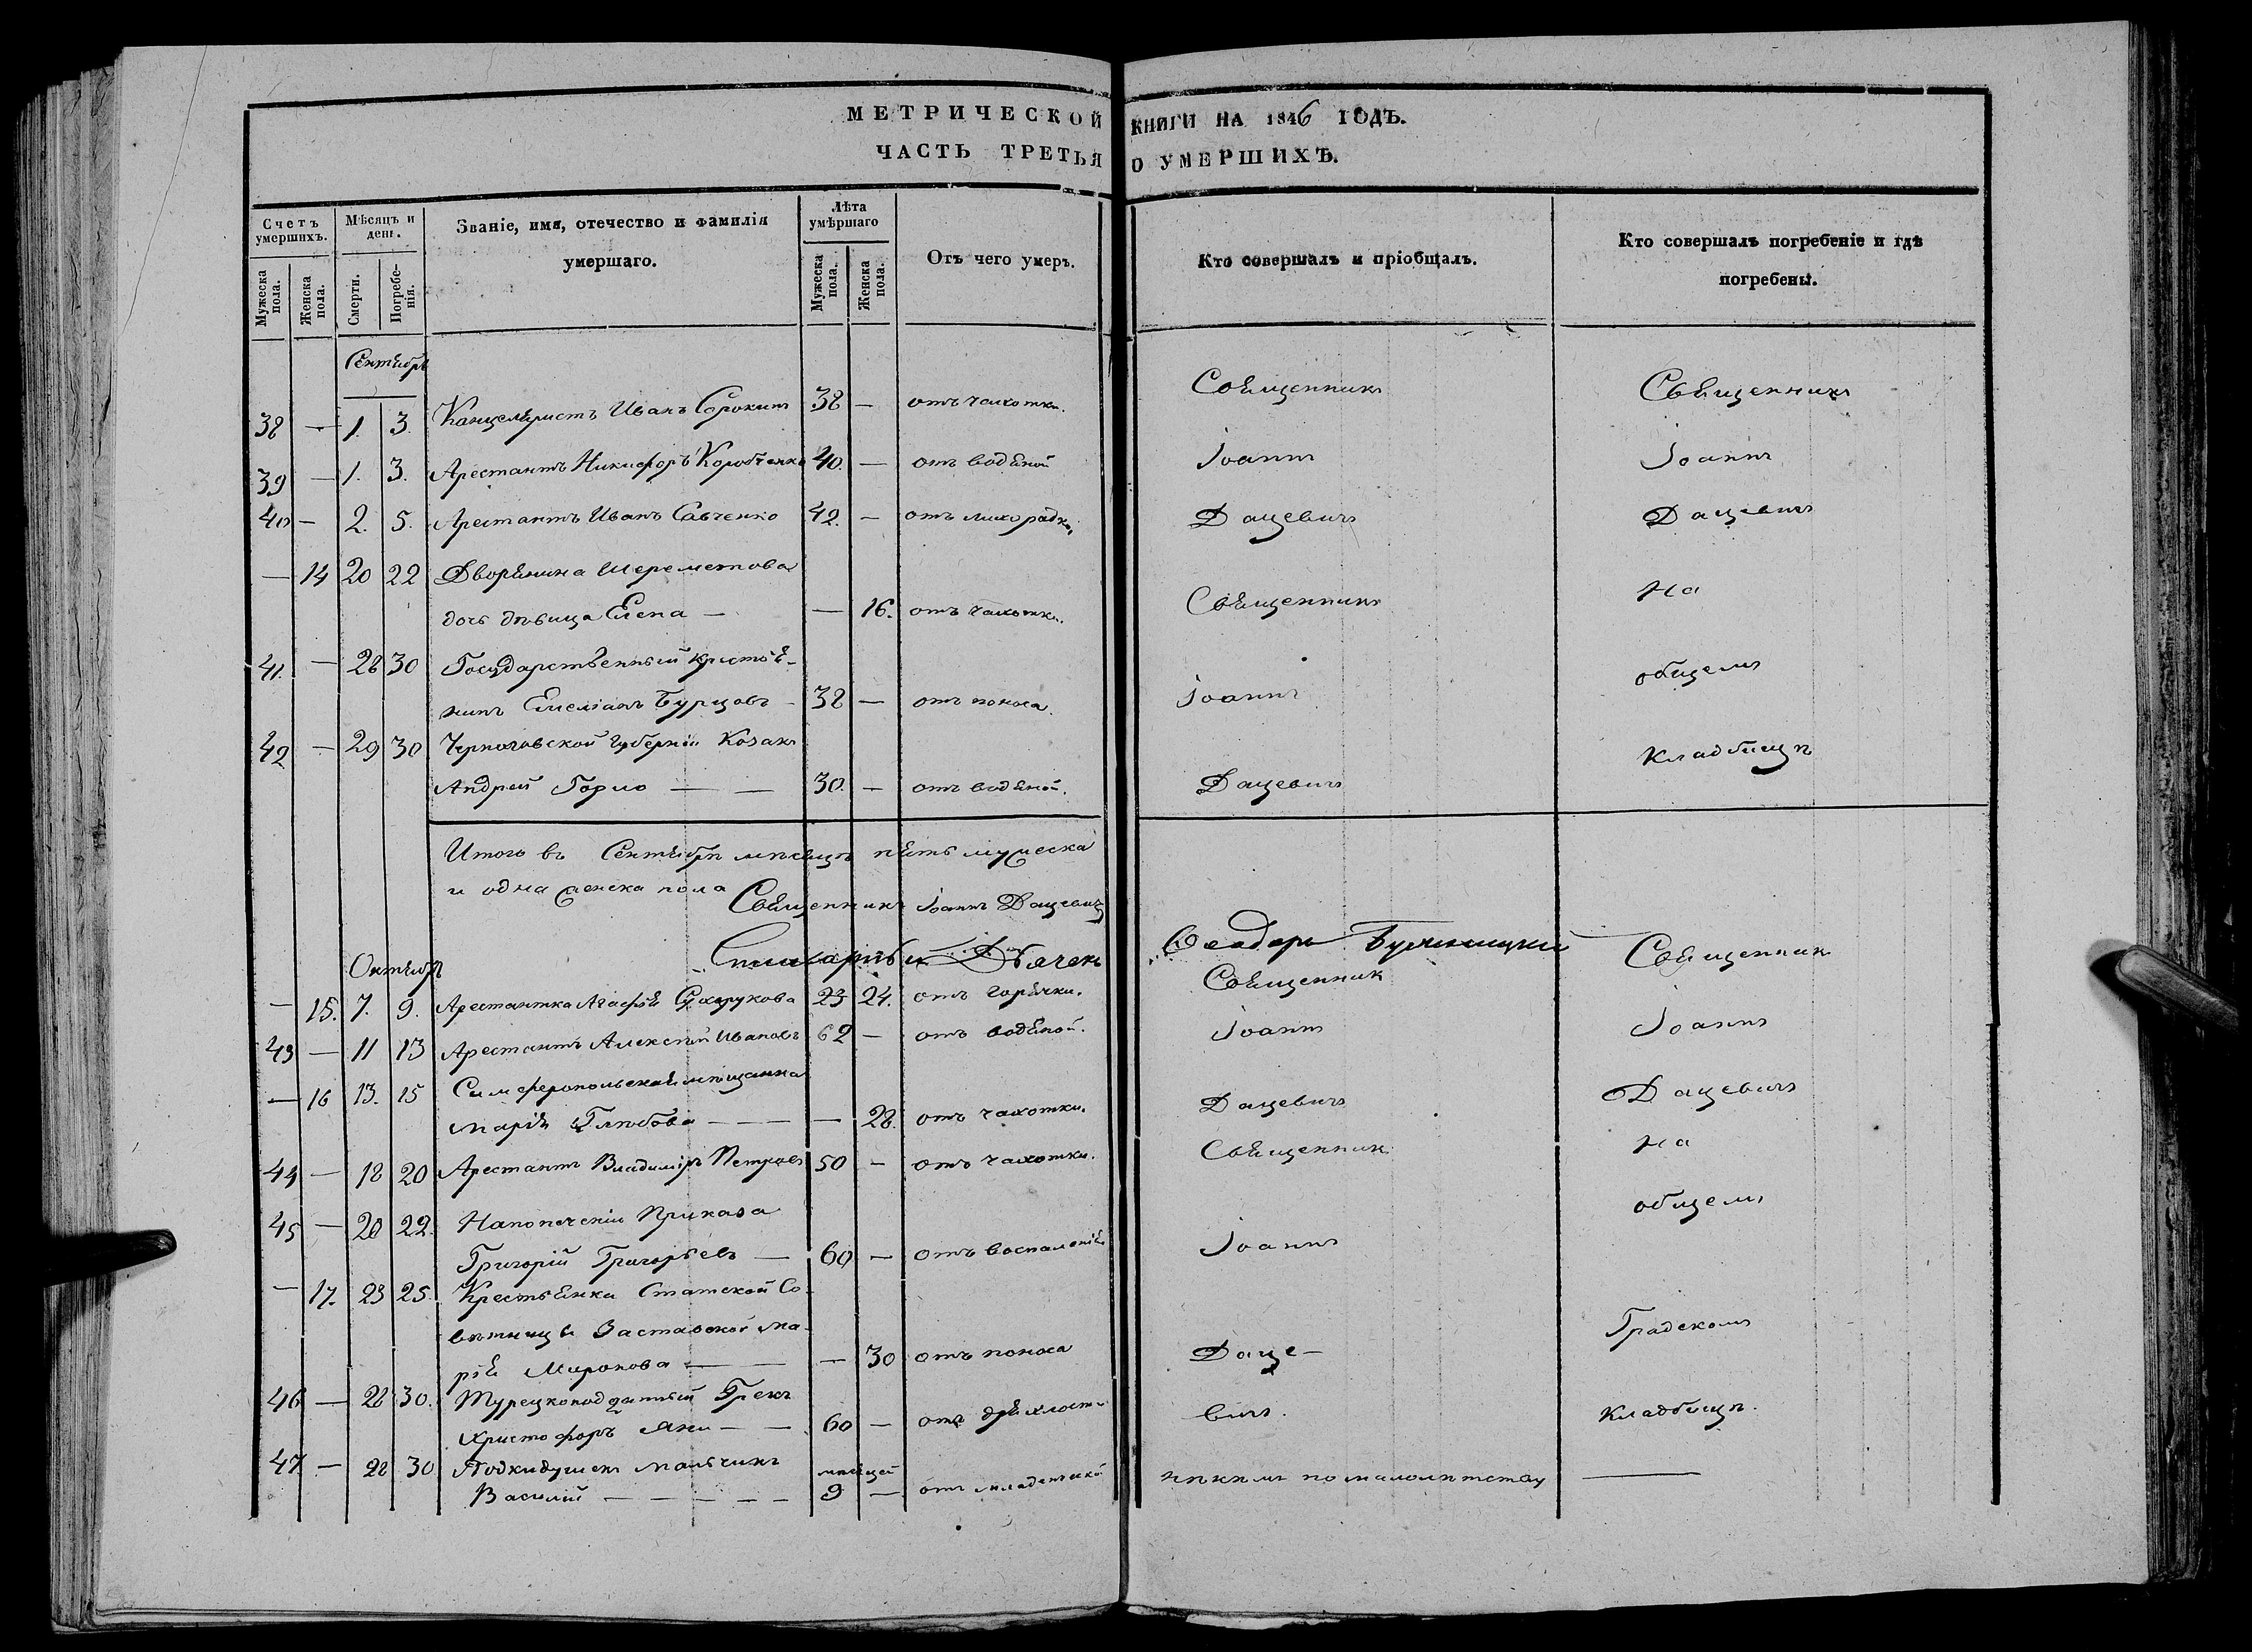 МЕТРИЧЕСКОЙ КНИГИ НА 1846 ГОДЪ.
ЧАСТЬ ТРЕТЬЯ О УМЕРШИХЪ.
Счетъ умершихъ.
Мужеска пола.
Женска пола.
Мѣсяцъ и день.
Смерти.
Погребенія.
Званіе, имя, отечество и фамилія
умершаго.
Лѣта умѣршаго
Мужеска пола.
Женска пола.
Отъ чего умеръ.
Кто совершалъ и пріобщалъ.
Кто совершалъ погребеніе и гдѣ
погребены.
Сентябрь
38 — 1. 3. Канцеляристъ Иванъ Сорокинъ 38 — отъ чахотки. Священникъ Священникъ
39 — 1. 3. Арестантъ Никифоръ Коробченко 40. — отъ водяной Іоаннъ Іоаннъ
40 — 2. 5. Арестантъ Иванъ Савченко 42. — отъ лихорадки. Дацевичъ Дацевичъ
— 14 20 22 Дворянина Шереметова
дочь дѣвица Елена — — 16. отъ чахотки. Священникъ На
41. — 28 30 Государственный кристья-
нинъ Емеліанъ Бурцовъ - 38 — отъ поноса. Іоаннъ общемъ
42 — 29 30 Черниговской Губерніи Козакъ
Андрей Горло — — 30. — отъ водяной. Дацевичъ Кладбищѣ
Итого въ Сентябрѣ мѣсяцѣ пять мужеска
и одна женска пола
Священникъ Іоаннъ Дацевичъ
Дьячекъ Феодоръ
Октябрь
— 15. 7. 9. Арестантка Агафія 23 24. отъ горячки. Священникъ Священникъ
43 — 11 13 Арестантъ Алексѣй Ивановъ 62 — отъ водяной. Іоаннъ Іоаннъ
— 16 13. 15 Симферопольская мѣщанка
Марія Глѣбова — — — — 28. отъ чахотки. Дацевичъ Дацевичъ
44 — 18 20 Арестантъ Владиміръ Петровъ 50 — отъ чахотки. Священникъ На
45 — 20 22. Напопеченіи Приказа общемъ
Григорій Григорьевъ — 60 — отъ воспаленія Іоаннъ
— 17. 23 25. Крестьянка Статской Со-
вѣтницы Заставской Ма- Градскомъ
рія Миронова — — — 30 отъ поноса Даце-
46 — 28 30. Турецкоподданный Грекъ
Христофоръ Яни — — 60 — отъ дряхлости вичъ. Кладбищѣ.
47 — 28 30 Подкидушекъ мальчикъ мѣсяцей
Василій — — — — — 9 — отъ младенческой никѣмъ по малолѣтству —